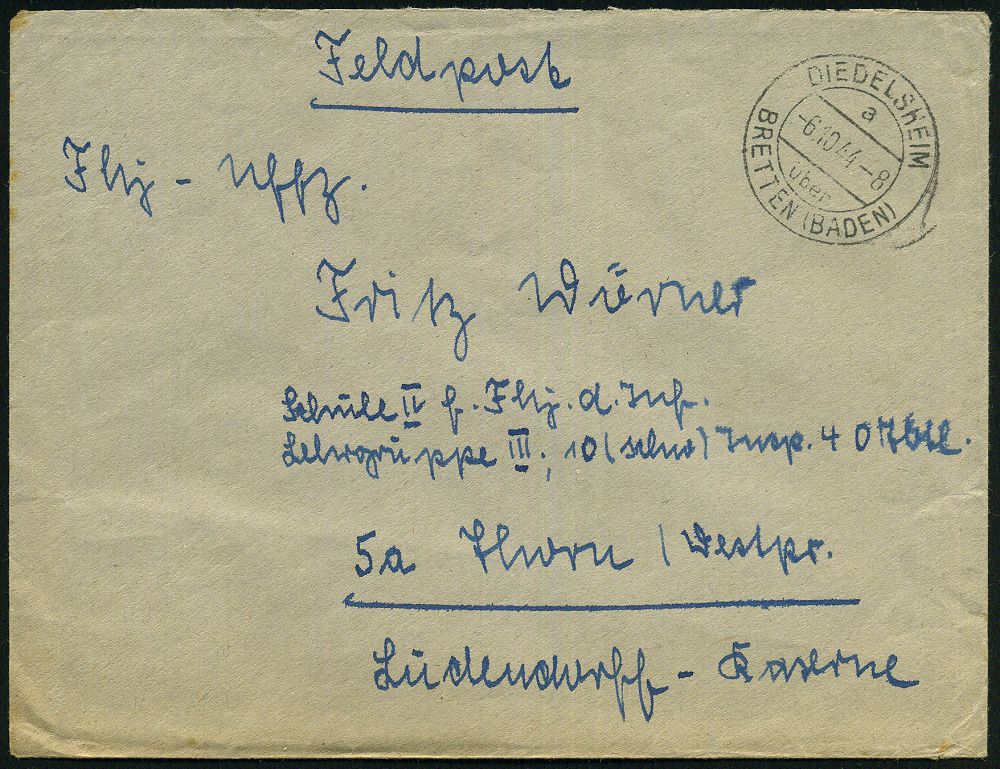 Feldpost
DIEDELSHEIM
a
-6.10.44.-8
über
BRETTEN (BADEN)
Fhj - Uffz.
Fritz Dürner
Schule II f. Fhj. d. Inf.
Lehrgruppe III, 10 (schw) Insp. 4
5a Thorn / Westpr.
Ludendorff - Kaserne